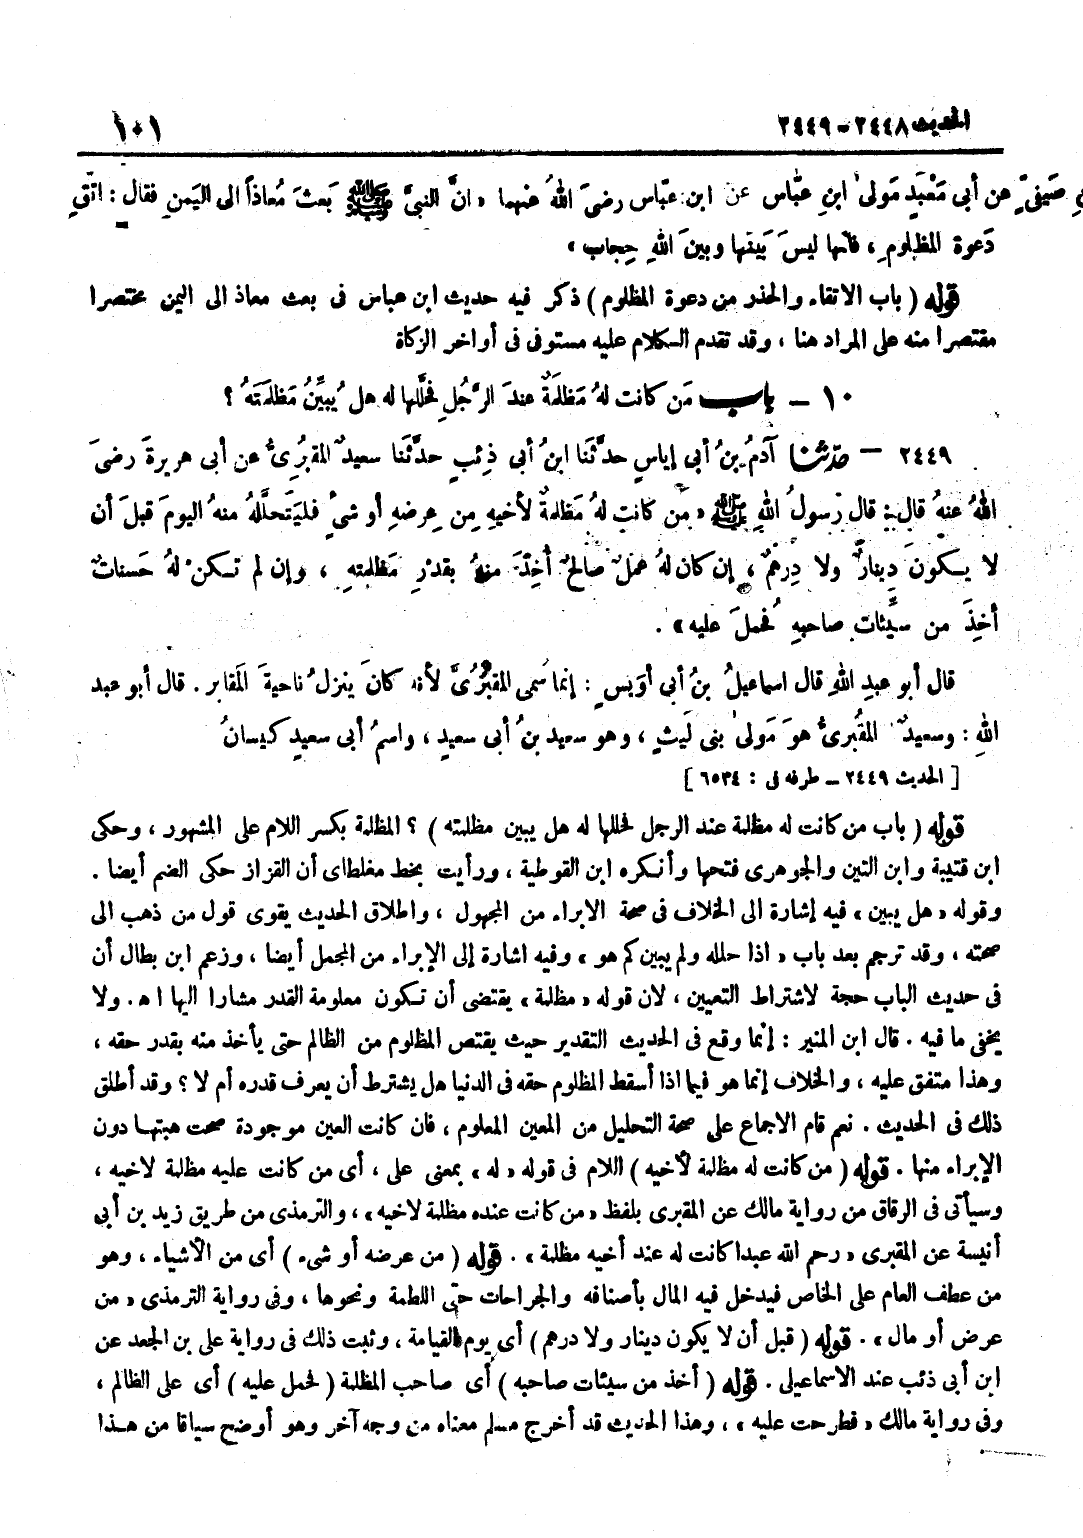 الحديث ٢٤٤٨ - ٢٤٤٩ ١٠١
صَيفىٍّ عن أبى مَعْبَدٍ مَولىٰ ابنِ عبَّاس عن ابن عبّاس رضىَ اللهُ عنهما « انَّ النبىَّ ﷺ بَعثَ مُعاذاً الى اليَمنِ فقال : اتَّقِ
دَعوةَ المظلومِ ، فانها ليسَ بَينَها وبينَ اللهِ حِجاب »
قوله ( باب الاتقاء والحذر من دعوة المظلوم ) ذكر فيه حديث ابن عباس فى بعث معاذ الى اليمن مختصرا
مقتصرا منه على المراد هنا ، وقد تقدم الكلام عليه مستوفى فى أواخر الزكاة
١٠ - باب مَن كانت لهُ مَظلَمةٌ عندَ الرَّجُلِ فحلَّلها له هل يُبيِّنُ مَظلمَتَهُ ؟
٢٤٤٩ - حدثنا آدمُ بنُ أبى إياسٍ حدَّثَنا ابنُ أبى ذِئبٍ حدَّثَنا سعيدٌ المَقبُرِىُّ عن أبى هريرةَ رضىَ
اللهُ عنهُ قال : قال رسولُ اللهِ ﷺ « من كانت لهُ مَظلمةٌ لأخيهِ مِن عِرضهِ أو شىءٍ فليَتحلَّلْهُ منهُ اليومَ قبلَ أن
لا يكونَ دِينارٌ ولا دِرهمٌ ، إن كان لهُ عملٌ صالحٌ أُخِذَ منهُ بقدْرِ مَظلمتِهِ ، وإن لم تكنْ لهُ حَسناتٌ
أُخِذَ من سيِّئاتِ صاحبِهِ فحُملَ عليه » .
قال أبو عبدِ اللهِ قال اسماعيلُ بنُ أبى أُوَيسٍ : إنما سُمى المَقبُرىَّ لأنه كانَ ينزلُ ناحيةَ المَقابر . قال أبو عبد
اللهِ : وسعيدٌ المَقبُرىُّ هوَ مَولىٰ بنى لَيثٍ ، وهو سعيد بنُ أبى سعيدٍ ، واسمُ أبى سعيدٍ كيسانُ
[ الحديث ٢٤٤٩ - طرفه فى : ٦٥٣٤ ]
قوله ( باب من كانت له مظلمة عند الرجل فحللها له هل يبين مظلمته ) ؟ المظلمة بكسر اللام على المشهور ، وحكى
ابن قتيبة وابن التين والجوهرى فتحها وأنكره ابن القوطية ، ورأيت بخط مغلطاى أن القزاز حكى الضم أيضا .
وقوله « هل يبين » فيه إشارة الى الخلاف فى صحة الابراء من المجهول ، واطلاق الحديث يقوى قول من ذهب الى
صحته ، وقد ترجم بعد باب « اذا حلله ولم يبين كم هو » وفيه اشارة إلى الإبراء من المجمل أيضا ، وزعم ابن بطال أن
فى حديث الباب حجة لاشتراط التعيين ، لان قوله « مظلمة » يقتضى أن تكون معلومة القدر مشارا اليها اه . ولا
يخفى ما فيه . قال ابن المنير : إنما وقع فى الحديث التقدير حيث يقتص المظلوم من الظالم حتى يأخذ منه بقدر حقه ،
وهذا متفق عليه ، والخلاف إنما هو فيما اذا أسقط المظلوم حقه فى الدنيا هل يشترط أن يعرف قدره أم لا ؟ وقد أطلق
ذلك فى الحديث . نعم قام الاجماع على صحة التحليل من المعين المعلوم ، فان كانت العين موجودة صحت هبتها دون
الإبراء منها . قوله ( من كانت له مظلمة لأخيه ) اللام فى قوله « له » بمعنى على ، أى من كانت عليه مظلمة لاخيه ،
وسيأتى فى الرقاق من رواية مالك عن المقبرى بلفظ « من كانت عنده مظلمة لاخيه » ، والترمذى من طريق زيد بن أبى
أنيسة عن المقبرى « رحم الله عبدا كانت له عند أخيه مظلمة » . قوله ( من عرضه أو شىء ) أى من الأشياء ، وهو
من عطف العام على الخاص فيدخل فيه المال بأصنافه والجراحات حتى اللطمة ونحوها ، وفى رواية الترمذى « من
عرض أو مال » . قوله ( قبل أن لا يكون دينار ولا درهم ) أى يوم القيامة ، وثبت ذلك فى رواية على بن الجعد عن
ابن أبى ذئب عند الاسماعيلى . قوله ( أخذ من سيئات صاحبه ) أى صاحب المظلمة ( فحمل عليه ) أى على الظالم ،
وفى رواية مالك « فطرحت عليه » ، وهذا الحديث قد أخرج مسلم معناه من وجه آخر وهو أوضح سياقا من هذا